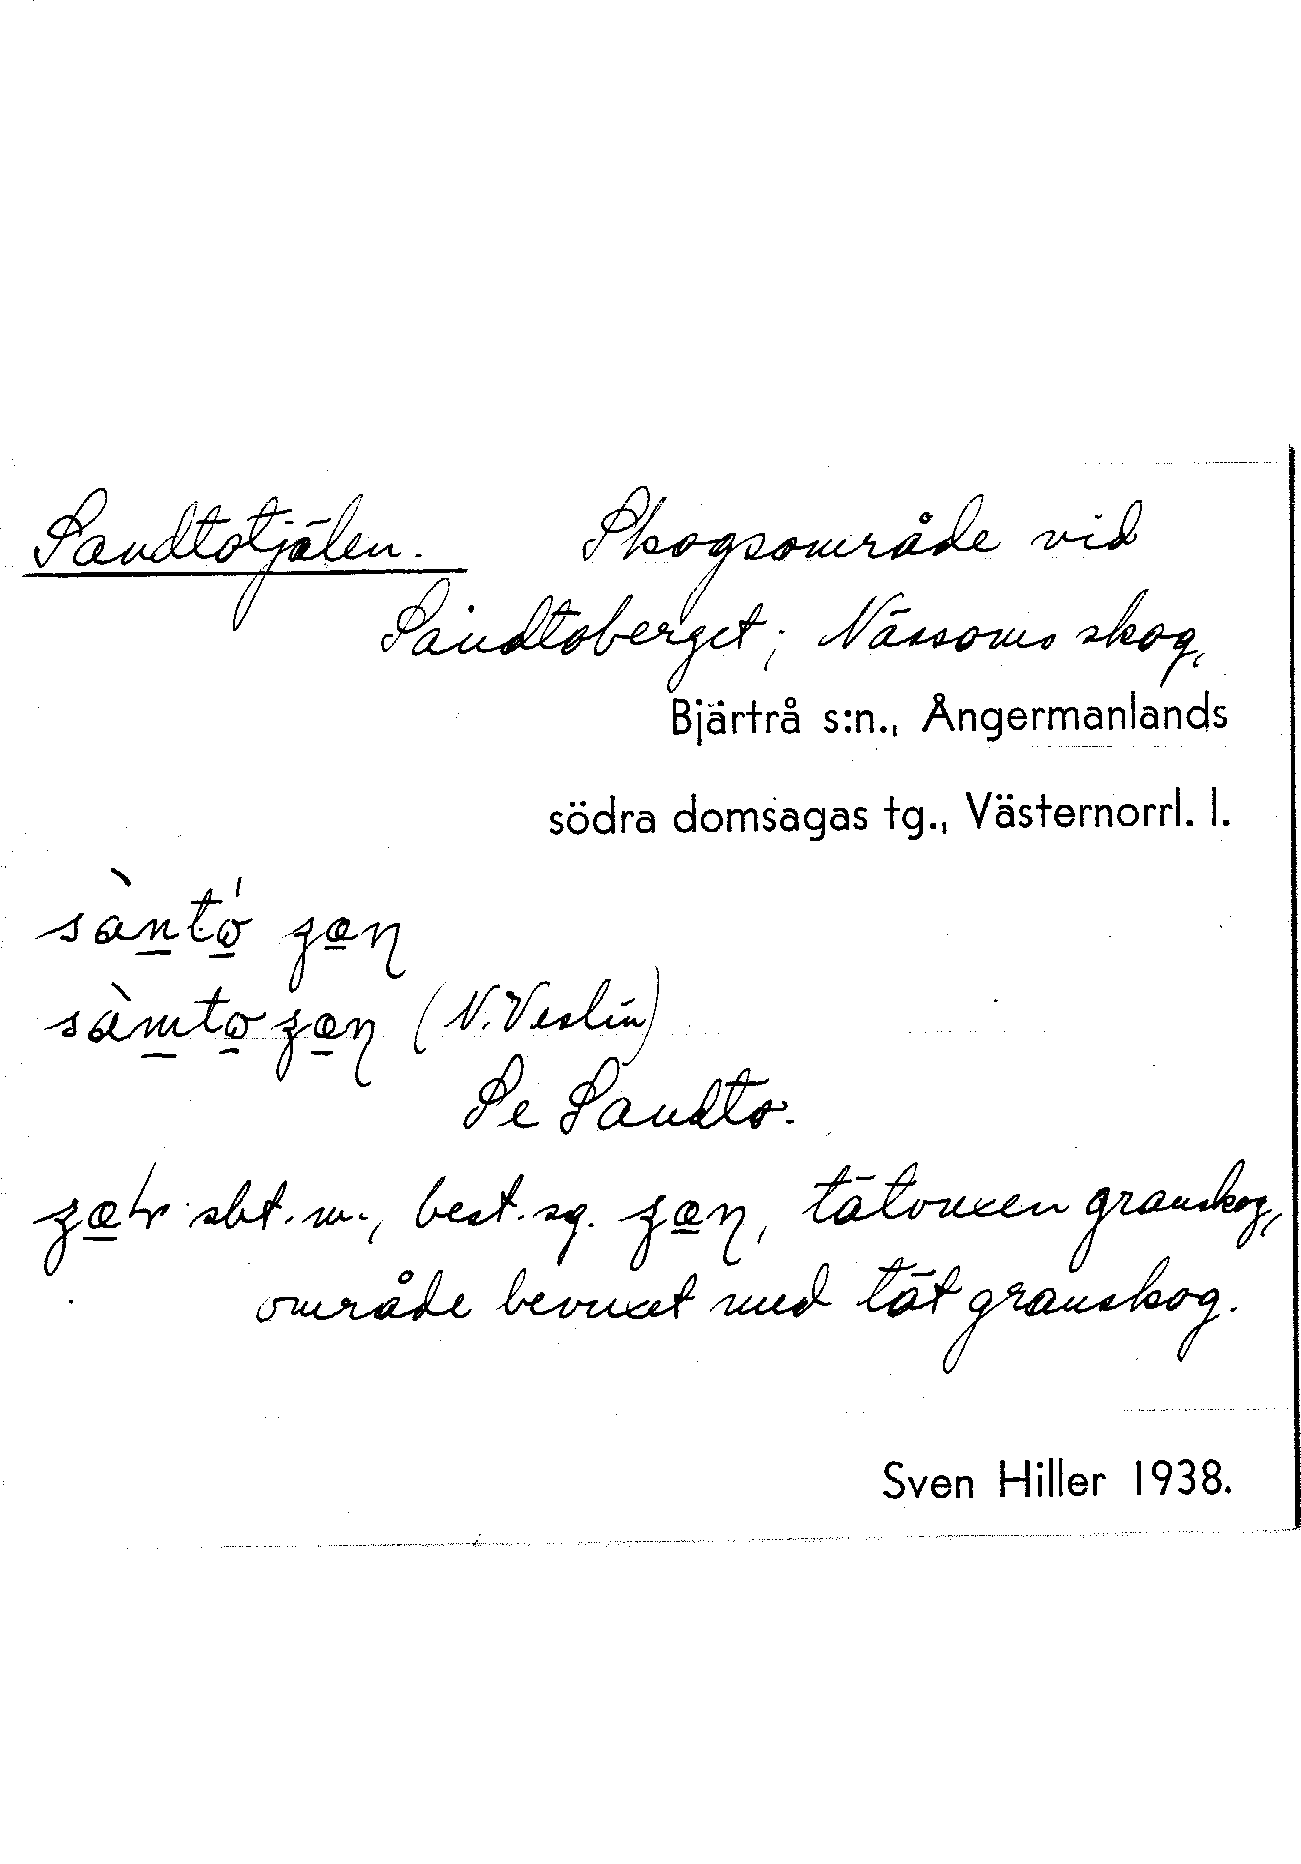 Sandtotjälen. Skogsområde vid
Sandtoberget; Nässoms skog,
Bjärtrå s:n., Ångermanlands
södra domsagas tg., Västernorrl. l.
(N. Veslin)
Se Sandto.
sbt. m., best. sg. tätvuxen granskog,
område bevuxet med tät granskog.
Sven Hiller 1938.